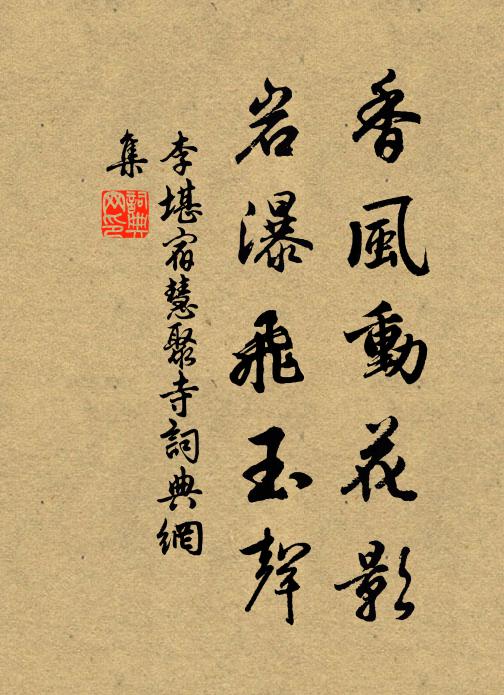 香風動花影
岩瀑飛玉聲
李堪宿慧聚寺詞典網
集
詞典
网印